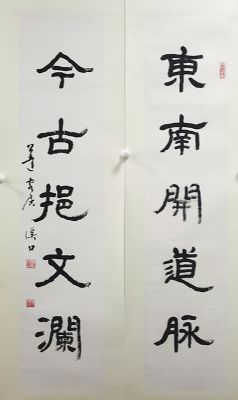 東南開道脉
今古挹文瀾
客居溪口